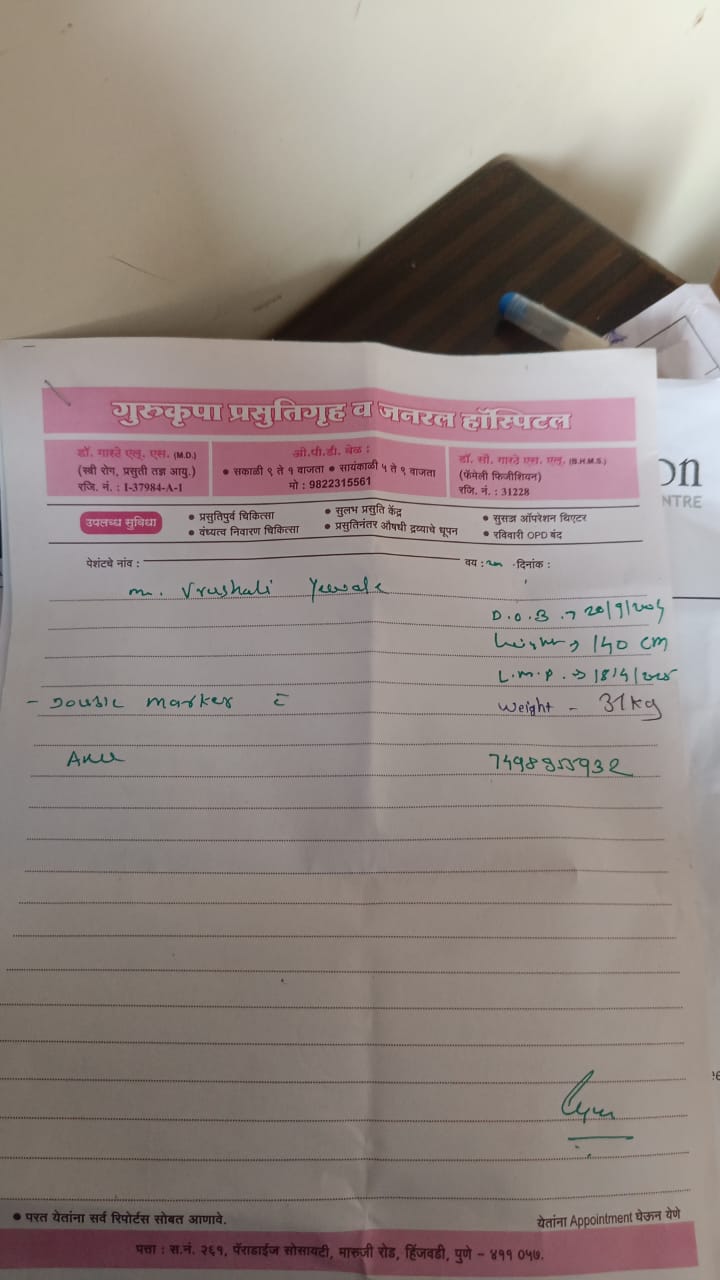 गुरुकृपा प्रसुतिगृह व जनरल हॉस्पिटल
डॉ. गास्ते एलू. एस. (M.D.)
(स्त्री रोग, प्रसुती तज्ञ आयु.)
रजि. नं. : I-37984-A-1
ओ.पी.डी. वेळ :
• सकाळी ९ ते १ वाजता • सायंकाळी ५ ते ९ वाजता
मो : 9822315561
डॉ. सौ. गास्ते एस. एलू. (B.H.M.S.)
(फॅमेली फिजीशियन)
रजि. नं. : 31228
उपलब्ध सुविधा
• प्रसुतिपुर्व चिकित्सा
• वंध्यत्व निवारण चिकित्सा
• सुलभ प्रसुति केंद्र
• प्रसुतिनंतर औषधी द्रव्याचे धूपन
• सुसज्ज ऑपरेशन थिएटर
• रविवारी OPD बंद
पेशंटचे नांव :
वय :
दिनांक :
Vrushali
D.O.B.
height → 140 cm
L.M.P. →
- marker
weight - 31kg
• परत येतांना सर्व रिपोर्टस सोबत आणावे.
येतांना Appointment घेऊन येणे
पत्ता : स.नं. २६१, पॅराडाईज सोसायटी, मारुजी रोड, हिंजवडी, पुणे – ४११ ०५७.
on
NTRE